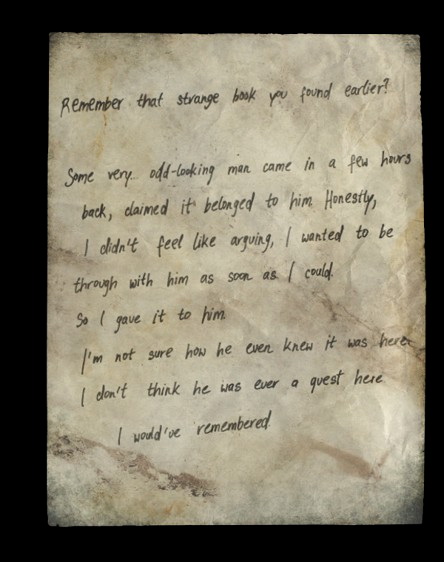 Remember that strange book you found earlier?
Some very odd-looking man came in a few hours
back, claimed it belonged to him. Honestly,
I didn't feel like arguing, I wanted to be
through with him as soon as I could.
So I gave it to him.
I'm not sure how he even knew it was here.
I don't think he was ever a guest here
I would've remembered.